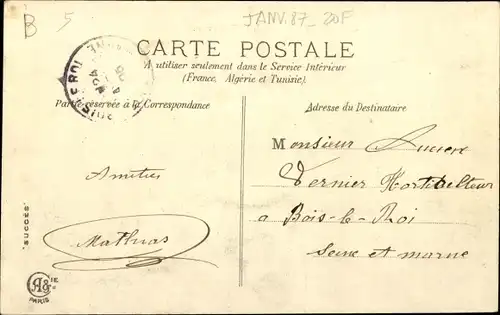 B 5 JANV.87_20F
CARTE POSTALE
A utiliser seulement dans le Service Intérieur
(France, Algérie et Tunisie)
Partie réservée à la Correspondance
Adresse du Destinataire
Monsieur Lucien
Vernier Horticulteur
a Bois-le-Roi
Seine et marne
Amitiés
Mathias
"SUCCÈS"
A& CIE
PARIS